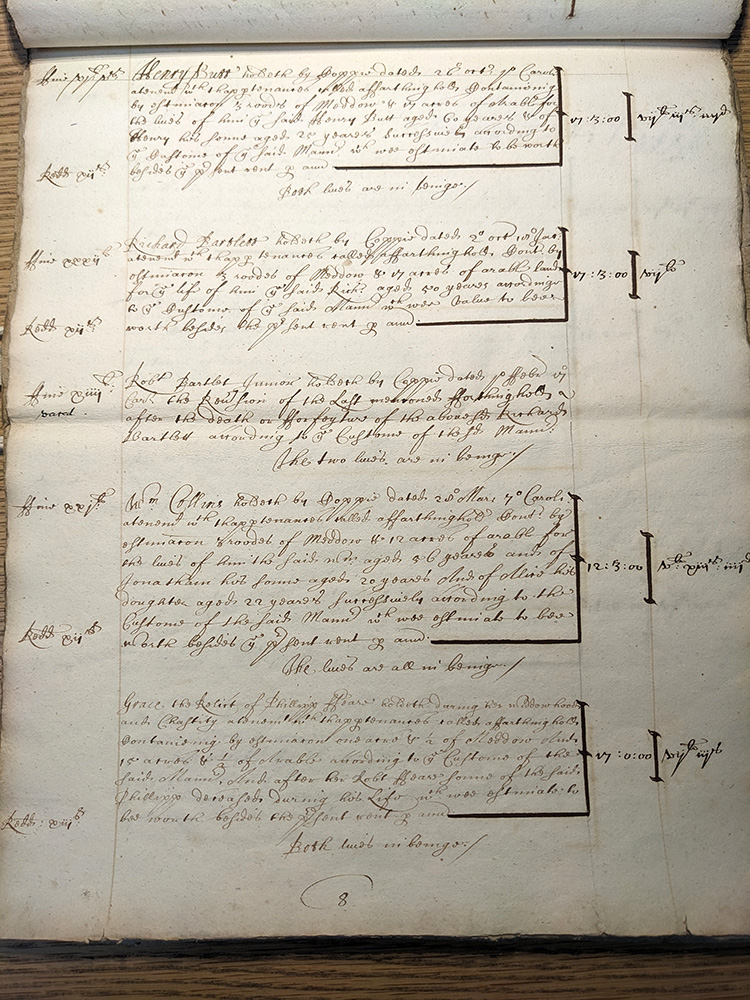 Henry Butt holdeth by Coppie dated 28 octr. 1o Caroli
atenemt wth thapptenances called affarthinghold Contaiening
by estimacon 3 roods of Meddow & 17 acres of Arable for
the lives of him ye said Henry Butt aged 60 yeares & of
Henry his sonne aged 28 yeares successively according to
ye Custome of ye said Mannr wch wee estimate to be worth
besides ye psent rent p ann
17:3:00
Redd xiis
Both lives are in beinge:/
ffine xxxiili
Richard Bartlett holdeth by Coppie dated 2o oct 18o Jac.
atenemt wth thapptenances called affarthinghold Cont. by
estimacon 3 roodes of Meddow & 17 acres of arable land
for ye life of him ye said Rich: aged 50 yeares according
to ye Custome of ye said Mannr wch wee value to bee
worth besides the psent rent p ann:
17:3:00
Redd xiis
ffine xiiiili
vacat.
Robt Bartlet Junior holdeth by Coppie dated 1o ffebr 17
Car: the Revsion of the Last mentioned ffarthinghold
after the death or fforfeyture of the abovesd Richard
Bartlett according to ye Custome of the sd Mannr:
The two lives are in beinge:/
ffine xxili
Wm Collins holdeth by Coppie dated 28o Mar: 7o Caroli
atenemt wth thapptenances called affarthinghold Cont: by
estimacon 3 roodes of Meddow & 12 acres of arable for
the lives of him the said Wm: aged 56 yeares and of
Jonathan his sonne aged 20 yeares And of Alice his
doughter aged 22 yeares successively according to the
Custome of the said Mannr wch wee estimate to bee
worth besides ye psent rent p ann:
12:3:00
Redd xiis
The lives are all in beinge:/
Grace the Relict of Phillipp Heare holdeth during her widdowhood
and Chastity atenemt wth thapptenances called affarthinghold
Contaiening by estimacon one acre & ½ of Meddow And
15 acres & ½ of Arable according to ye Custome of the
said Mannr, And after her Robt Heare sonne of the said
Phillipp deceased during his Life wch wee estimate to
bee worth besides the psent rent p ann
17:0:00
Redd: xiis
Both lives in beinge:/
8